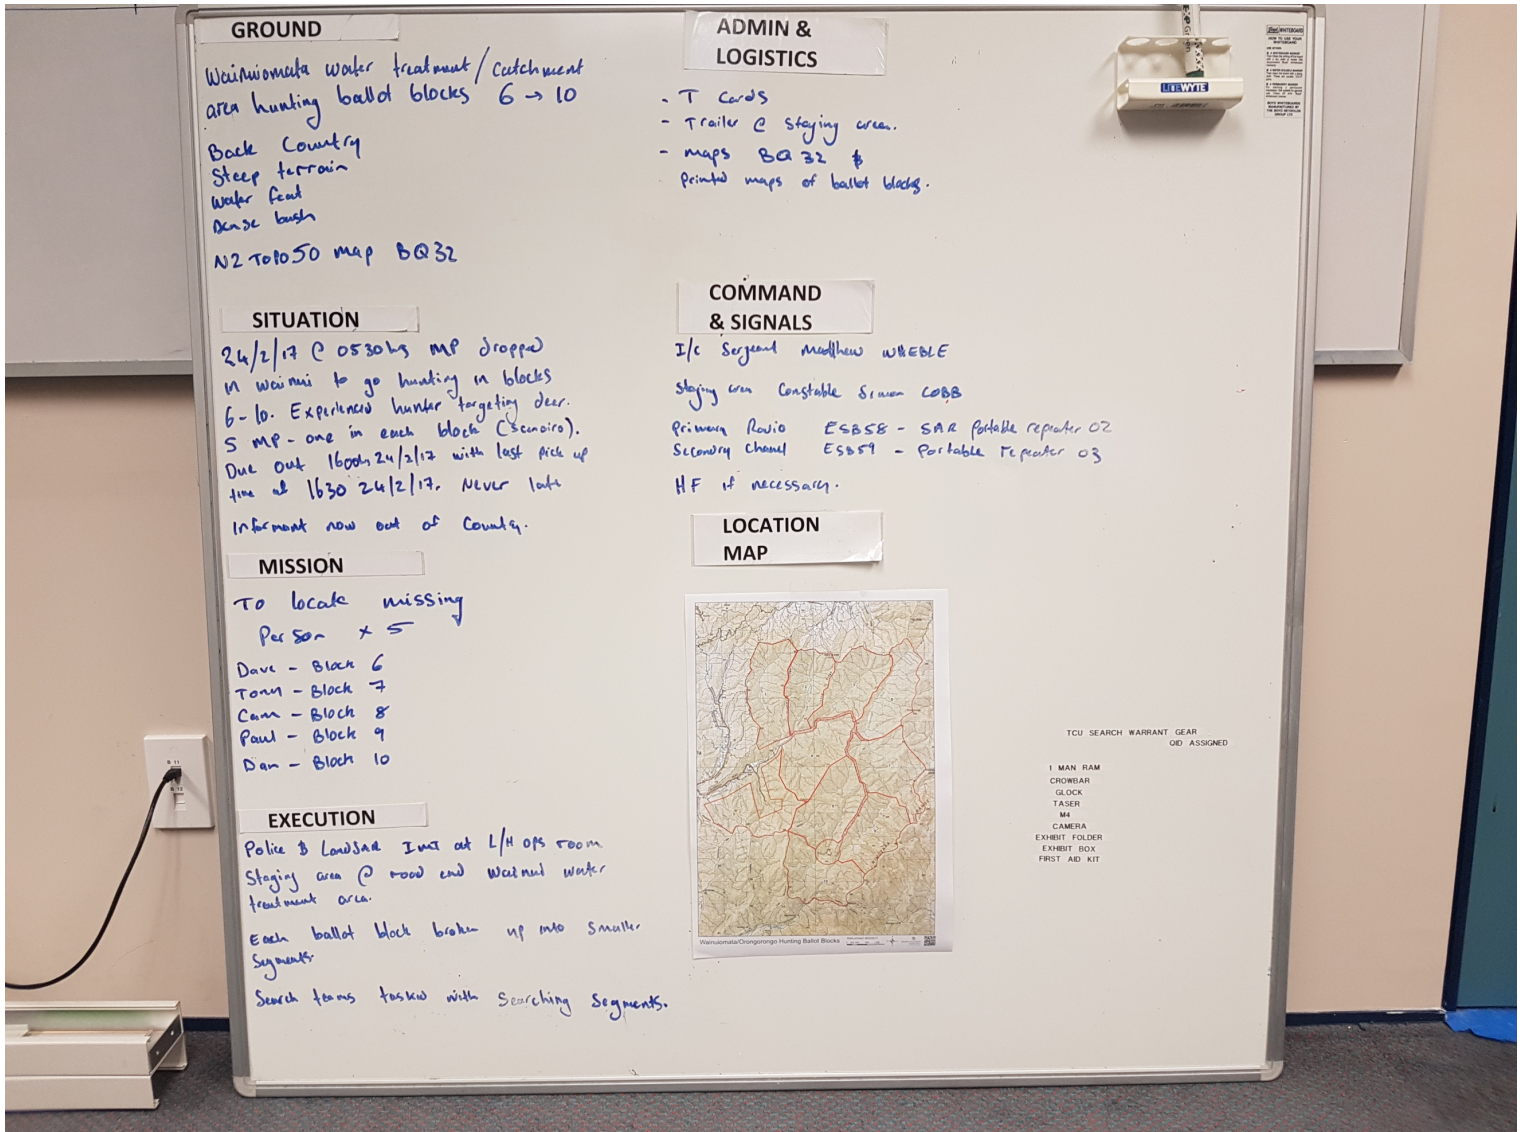 GROUND
Wainuiomata water treatment / Catchment
area hunting ballot blocks 6 → 10
Back Country
Steep terrain
Water feat
Dense bush
NZ TOPO50 map BQ32
SITUATION
24/2/17 @ 0530hrs MP dropped
in Wainui to go hunting in blocks
6-10. Experienced hunter targeting deer.
5 MP - one in each block (Scenairo).
Due out 1600h 24/2/17 with last pick up
time at 1630 24/2/17. Never late
Informant now out of Country.
MISSION
To locate missing
Person x 5
Dave - Block 6
Tony - Block 7
Cam - Block 8
Paul - Block 9
Dan - Block 10
EXECUTION
Police & LandSAR IMT at L/H OPS room
Staging area @ road end Wainui water
treatment area.
Each ballot block broken up into smaller
Segments.
Search teams tasked with Searching Segments.
ADMIN &
LOGISTICS
- T Cards
- Trailer @ staging area.
- maps BQ32 &
Printed maps of ballot blocks.
COMMAND
& SIGNALS
I/C Sergeant Matthew WHEBLE
Staging area Constable Simon COBB
Primary Radio ESB58 - SAR Portable repeater 02
Secondry Chanel ESB59 - Portable repeater 03
HF if necessary.
LOCATION
MAP
Wainuiomata/Orongorongo Hunting Ballot Blocks
LITEWYTE
TCU SEARCH WARRANT GEAR
OID ASSIGNED
1 MAN RAM
CROWBAR
GLOCK
TASER
M4
CAMERA
EXHIBIT FOLDER
EXHIBIT BOX
FIRST AID KIT